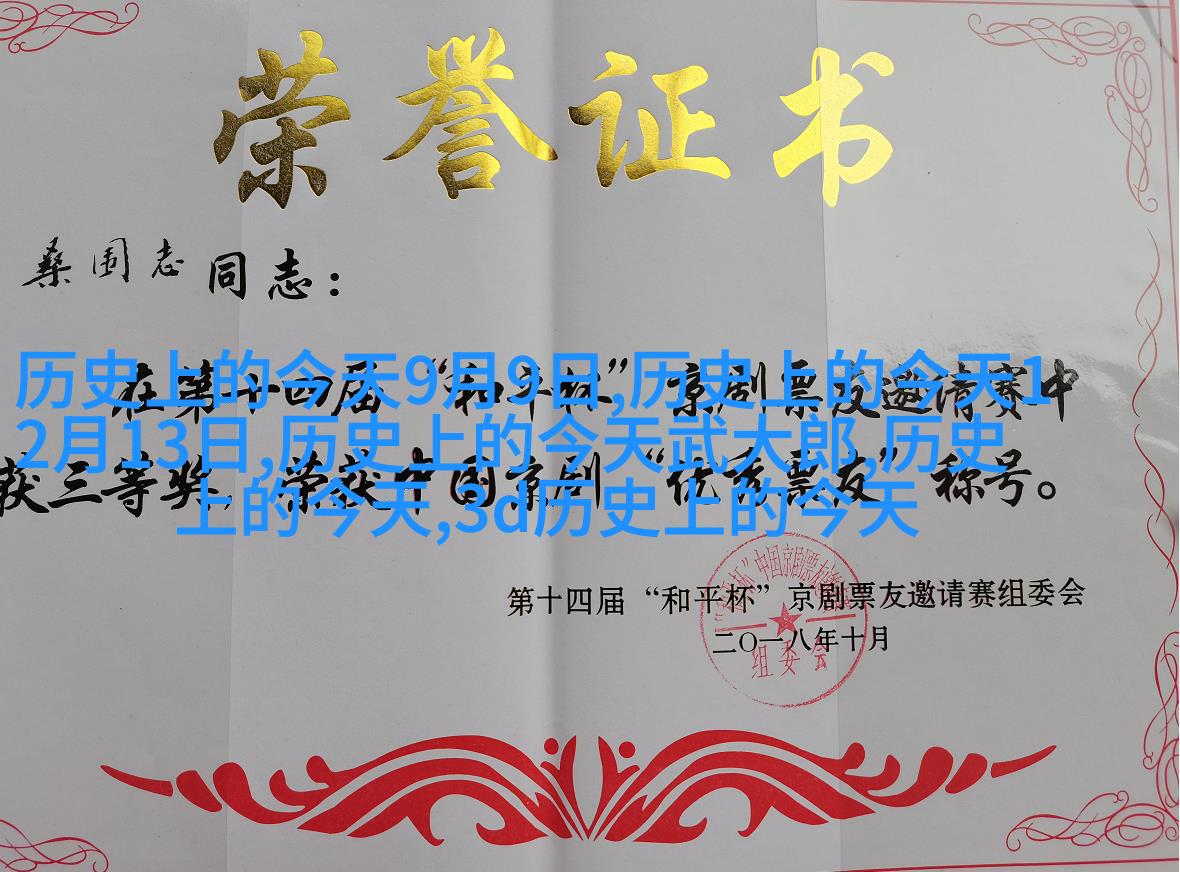 荣誉证书
桑国志 同志：
在第十四届“和平杯”京剧票友邀请赛中
获三等奖，荣获中国京剧“优秀票友”称号。
历史上的今天9月9日,历史上的今天1
2月13日,历史上的今天武大郎,历史
上的今天,3d历史上的今天
第十四届“和平杯”京剧票友邀请赛组委会
二〇一八年十月
组委会